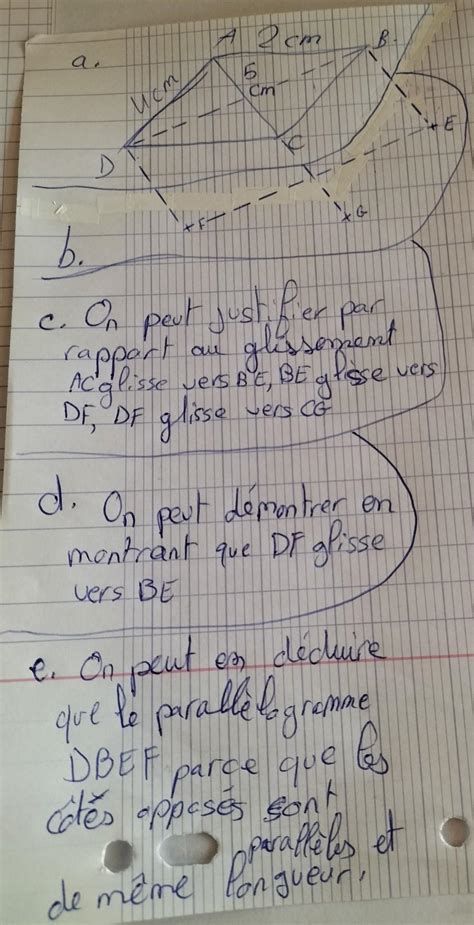 a.
A 2 cm B.
4cm
5
cm
D
C
E
F
G
b.
c. On peut justifier par
rappart au glissement
AC glisse vers BE, BE glisse vers
DF, DF glisse vers CG
d. On peut démontrer en
montrant que DF glisse
vers BE
e. On peut en déduire
que le parallèlogramme
DBEF parce que les
côtés opposés sont
parallèles et
de même longueur.